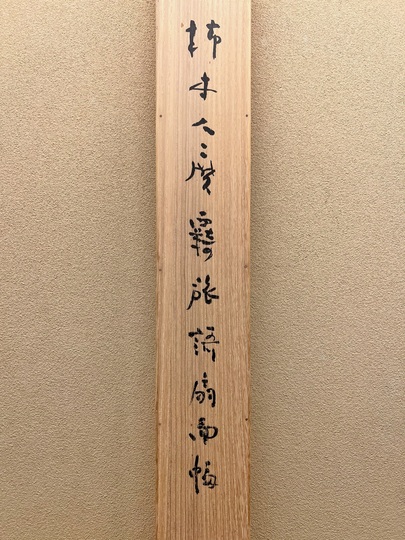 柿本人麿覉旅謌扇面幅